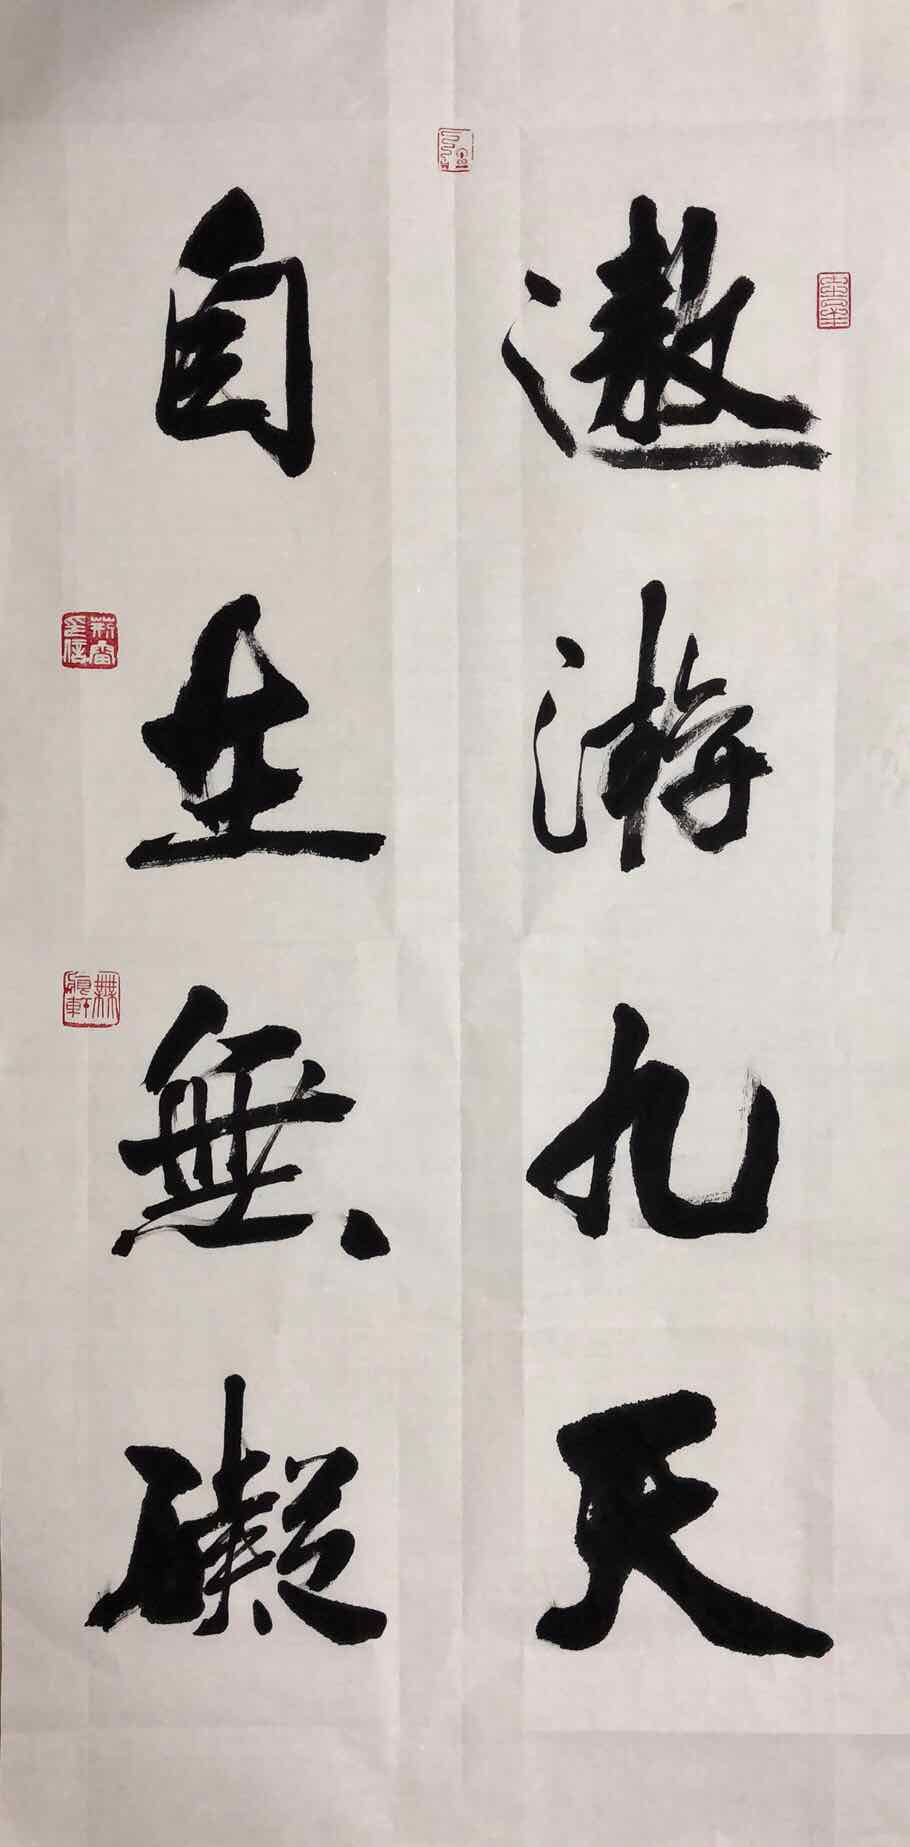 遨游九天
自在無礙